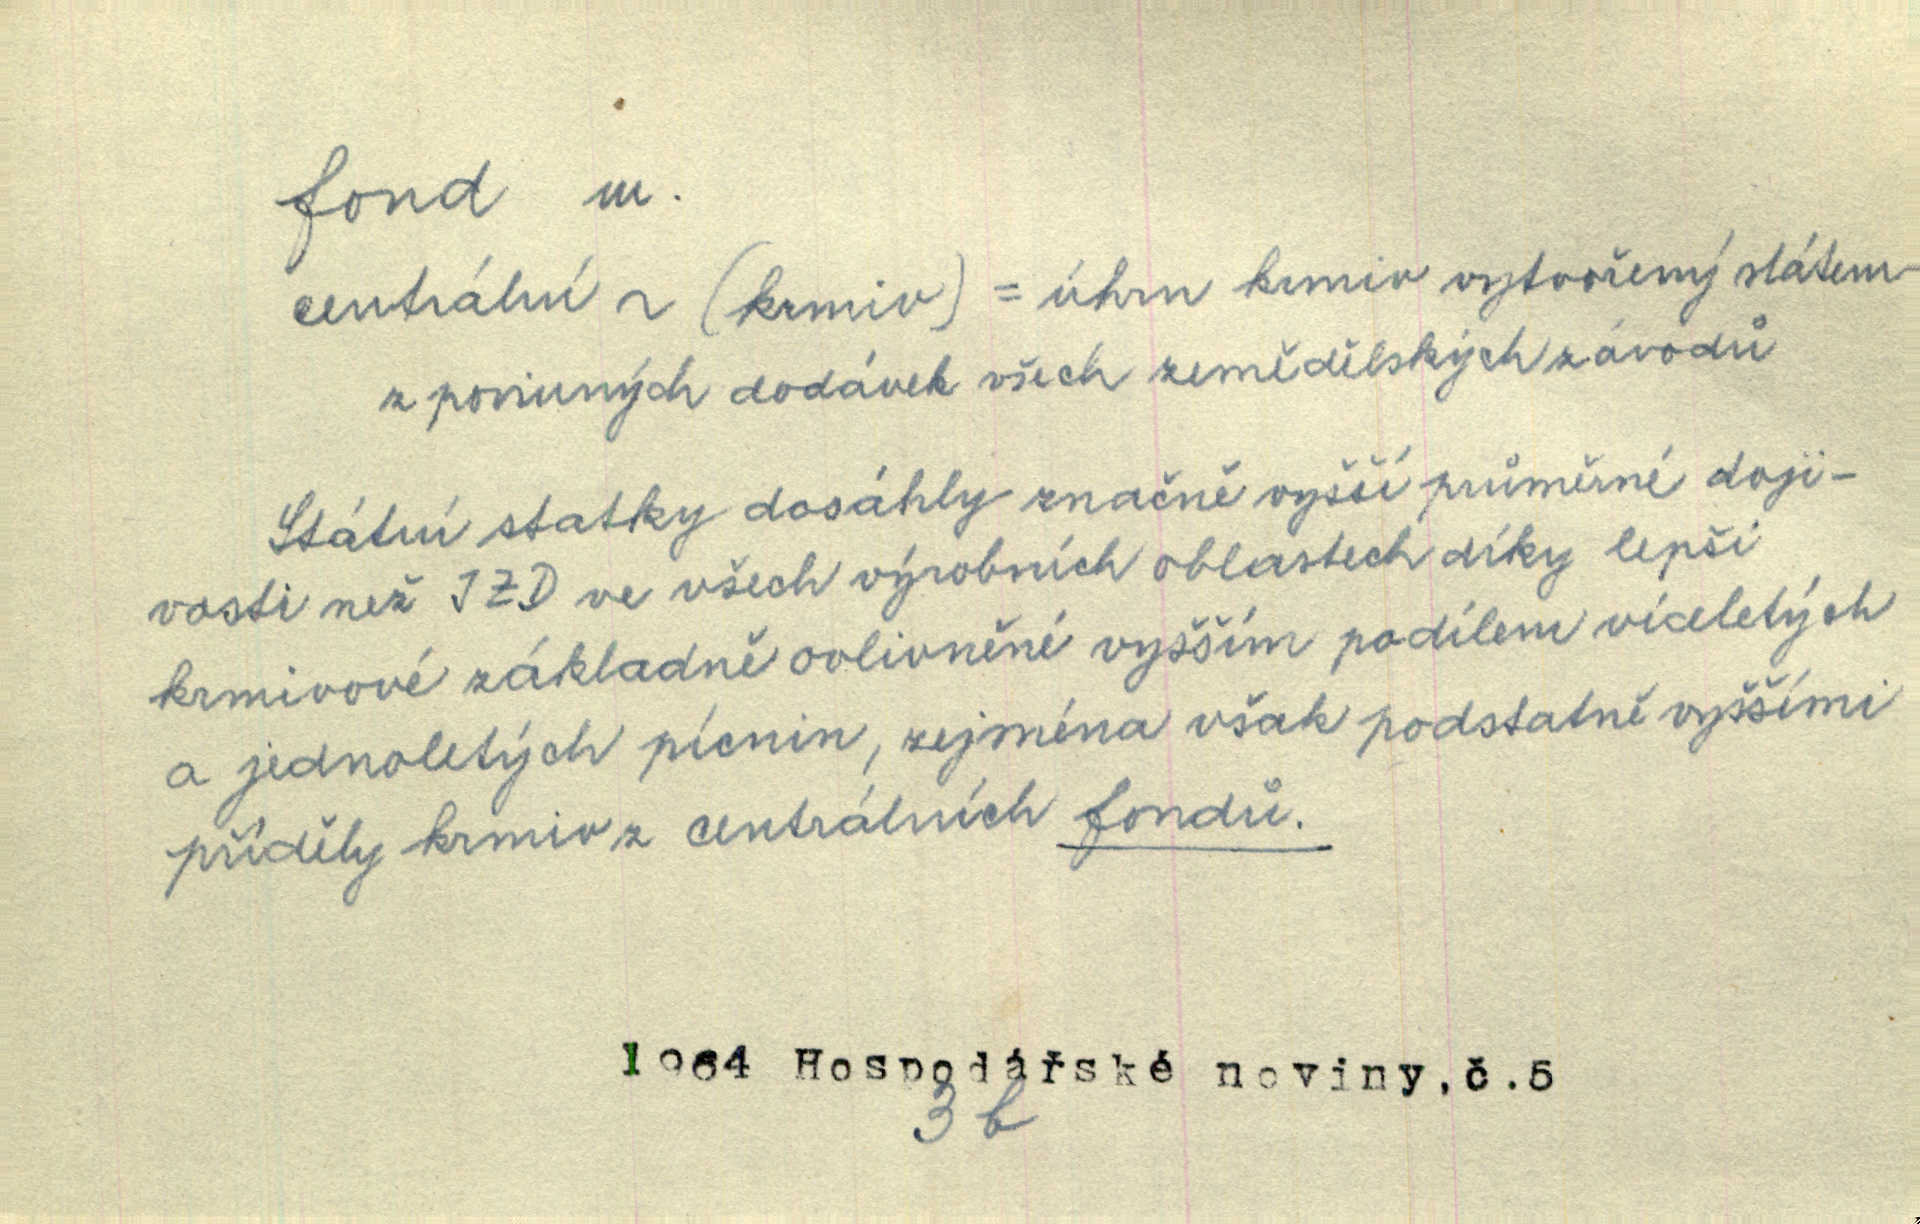 fond m.
centrální ~ (krmiv) = úhrn krmiv vytvořený státem
z povinných dodávek všech zemědělských závodů
Státní statky dosáhly značně vyšší průměrné doji-
vosti než JZD ve všech výrobních oblastech díky lepší
krmivové základně ovlivněné vyšším podílem víceletých
a jednoletých pícnin, zejména však podstatně vyššími
příděly krmiv z centrálních fondů.
1964 Hospodářské noviny, č.5
3 b